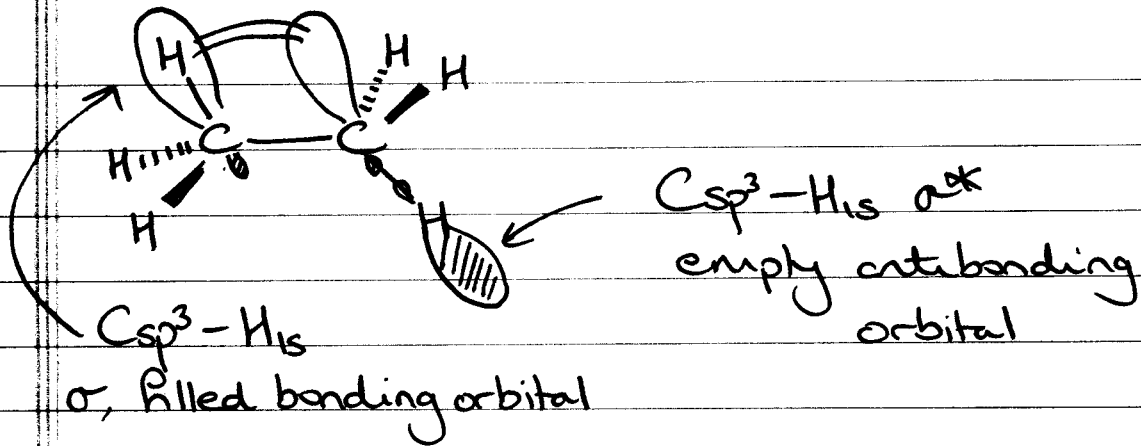 H
H H
C C
H
H H
Csp³-H1s σ*
empty antibonding
orbital
Csp³-H1s
σ, filled bonding orbital